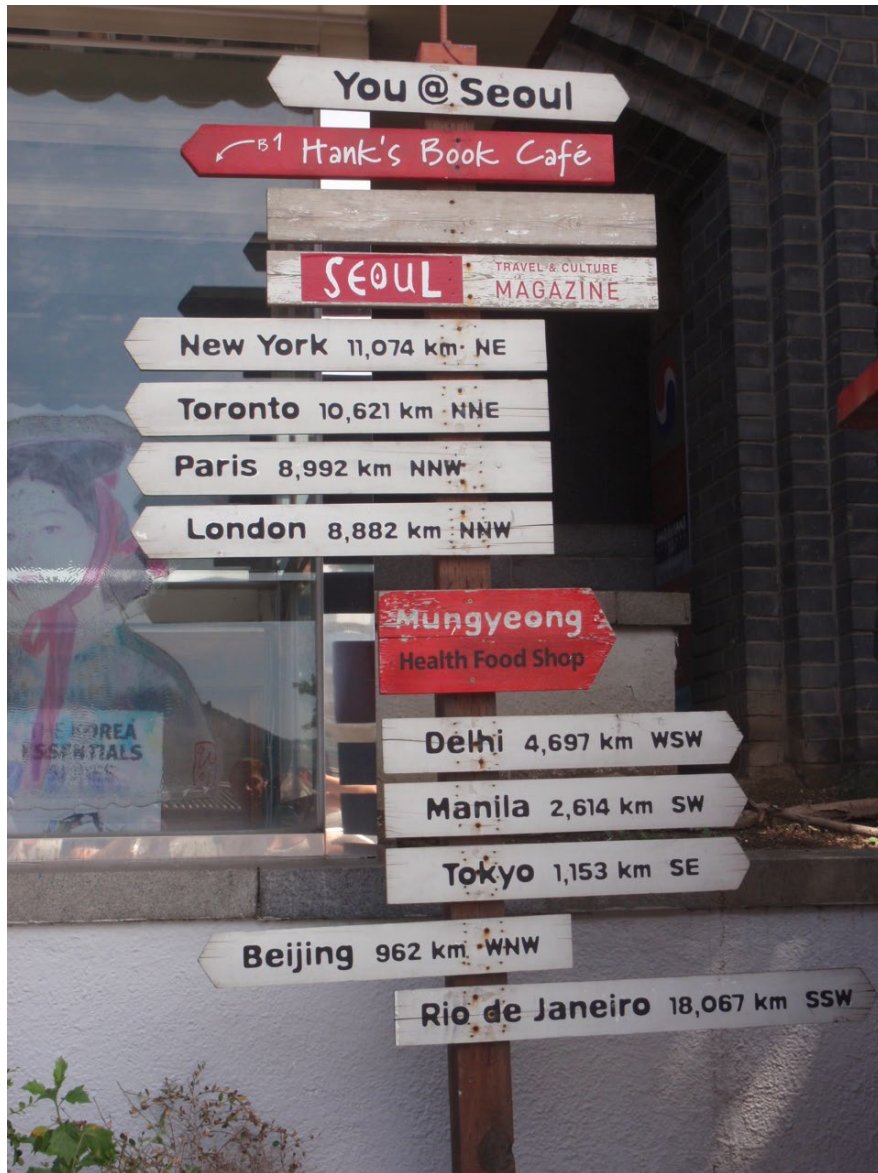 You @ Seoul
B1 Hank's Book Café
SEOUL TRAVEL & CULTURE
MAGAZINE
New York 11,074 km NE
Toronto 10,621 km NNE
Paris 8,992 km NNW
London 8,882 km NNW
Mungyeong
Health Food Shop
THE KOREA
ESSENTIALS
SERIES
Delhi 4,697 km WSW
Manila 2,614 km SW
Tokyo 1,153 km SE
Beijing 962 km WNW
Rio de Janeiro 18,067 km SSW